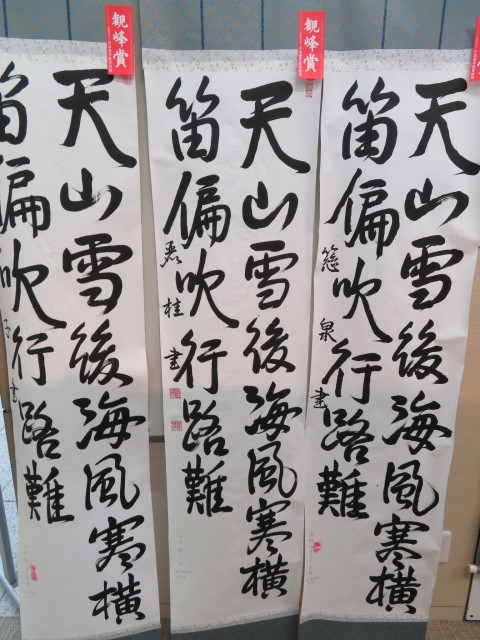 観峰賞
天山雪後海風寒横
笛偏吹行路難
慈泉書
観峰賞
天山雪後海風寒横
笛偏吹行路難
桂書
観峰賞
天山雪後海風寒横
笛偏吹行路難
書